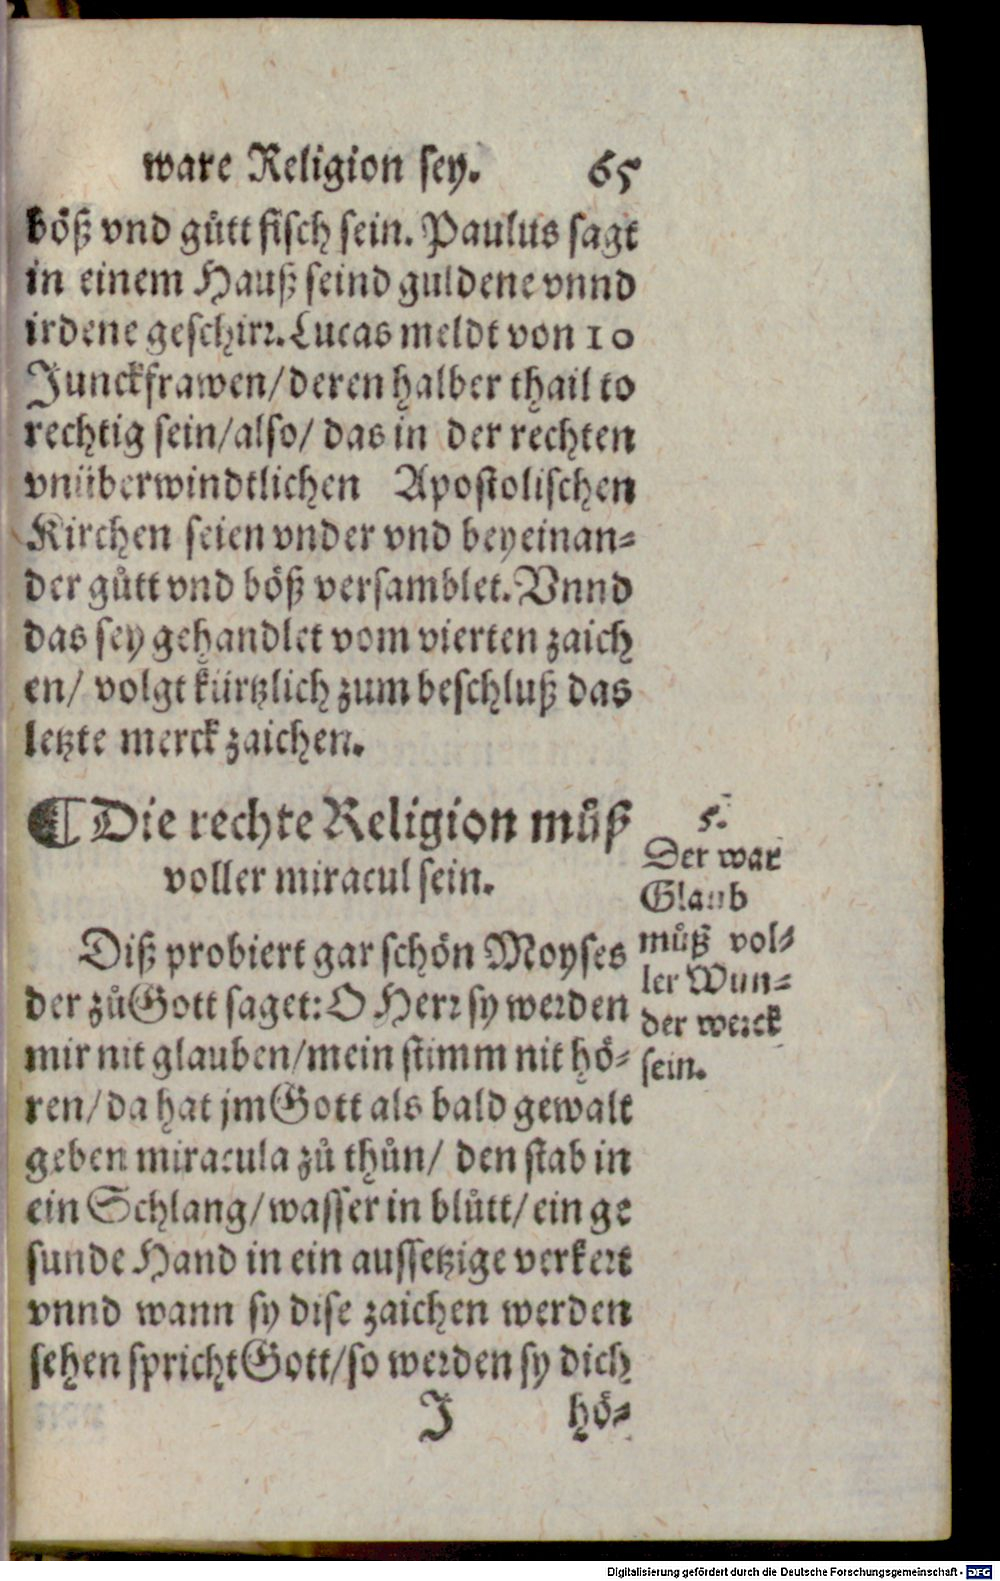 ware Religion sey. 65
böß vnd gůtt fisch sein. Paulus sagt
in einem Hauß seind guldene vnnd
irdene geschirr. Lucas meldt von 10
Junckfrawen/ deren halber thail to
rechtig sein/ also/ das in der rechten
vnüberwindtlichen Apostolischen
Kirchen seien vnder vnd beyeinan-
der gůtt vnd böß versamblet. Vnnd
das sey gehandlet vom vierten zaich
en/ volgt kürtzlich zum beschluß das
letzte merckzaichen.
¶ Die rechte Religion můß
voller miracul sein.
5.
Der war
Glaub
můß vol-
ler Wun-
der werck
sein.
Diß probiert gar schön Moyses
der zů Gott saget: O Herr sy werden
mir nit glauben/ mein stimm nit hö-
ren/ da hat jm Gott als bald gewalt
geben miracula zů thůn/ den stab in
ein Schlang/ wasser in blůtt/ ein ge
sunde Hand in ein aussetzige verkert
vnnd wann sy dise zaichen werden
sehen spricht Gott/ so werden sy dich
J hö-
Digitalisierung gefördert durch die Deutsche Forschungsgemeinschaft - DFG